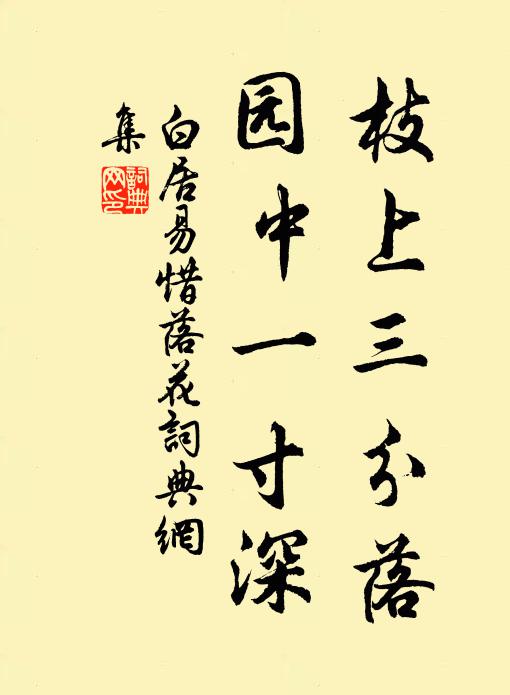 枝上三分落
园中一寸深
白居易惜落花詞典網
集
詞典
网印